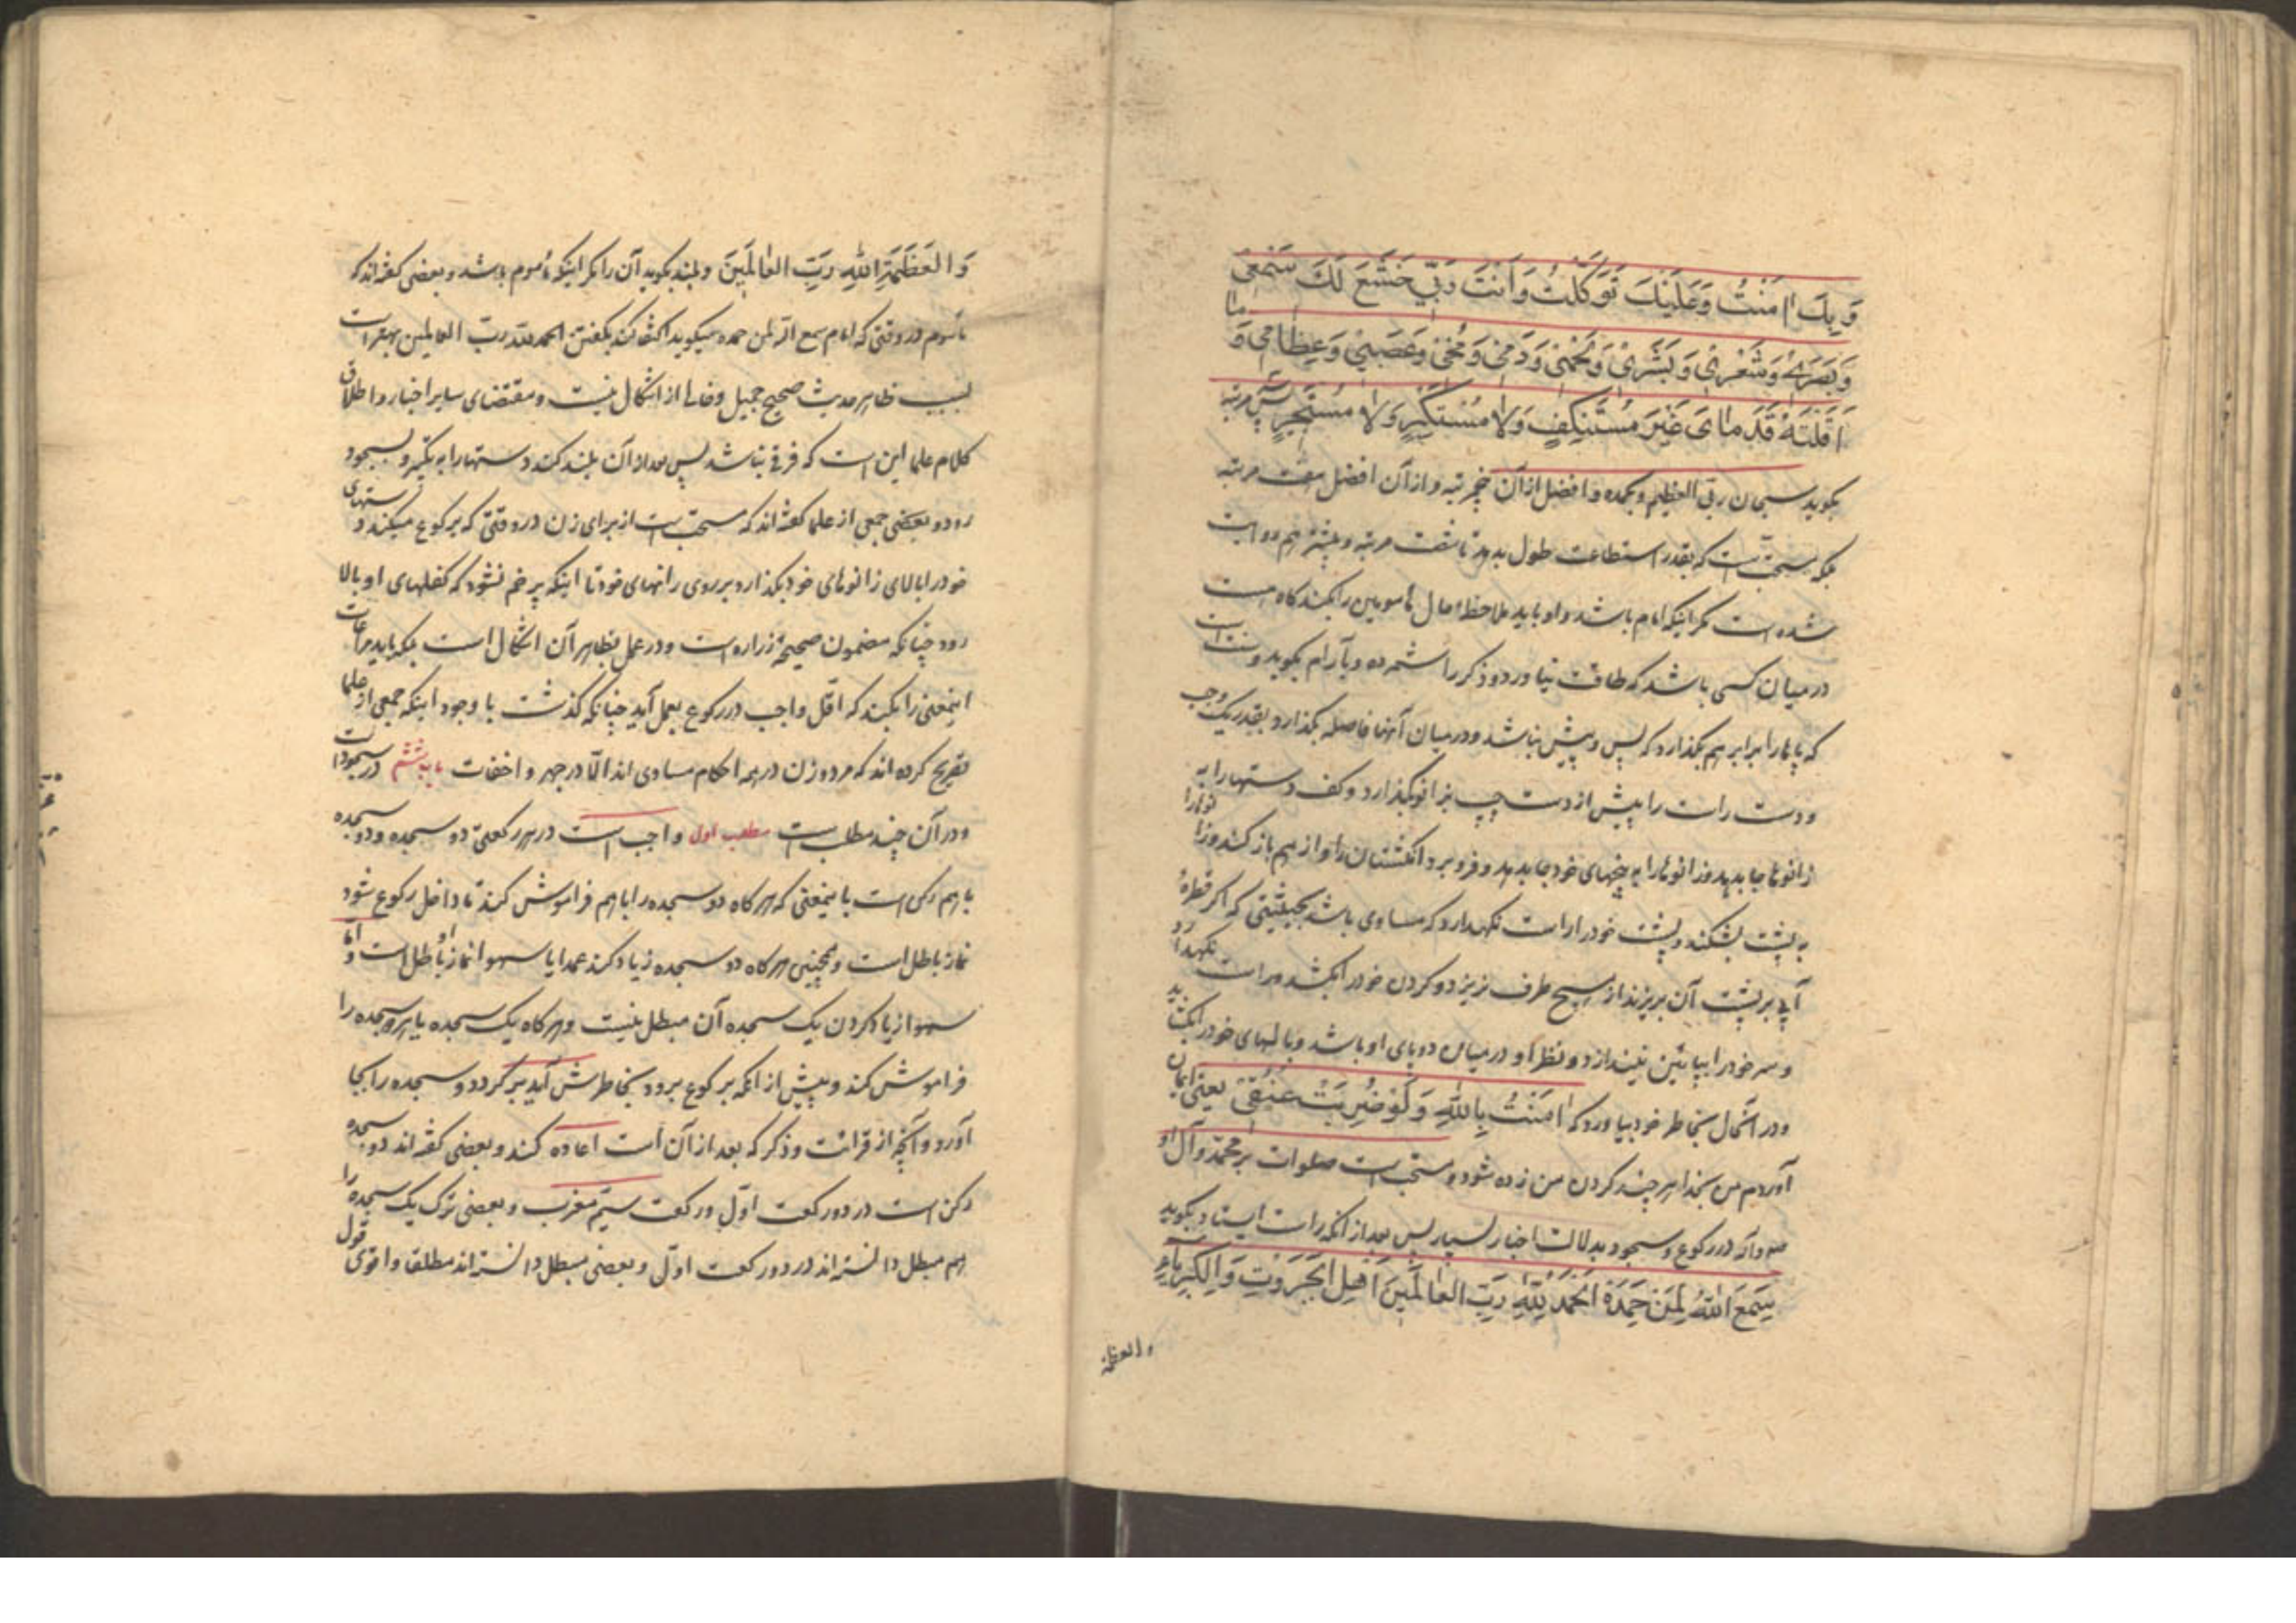 وَ بِکَ اٰمَنْتُ وَ عَلَیْکَ تَوَکَّلْتُ وَ اَنْتَ رَبّی خَشَعَ لَکَ سَمْعی
وَ بَصَری وَ شَعْری وَ بَشَری وَ لَحْمی وَ دَمی وَ مُخّی وَ عَصَبی وَ عِظامی وَ ما
اَقَلَّتْهُ قَدَمای غَیْرَ مُسْتَنْکِفٍ وَلا مُسْتَکْبِرٍ وَلا مُسْتَحْسِرٍ پس سه مرتبه
بکوید سبحان ربی العظیم و بحمده و افضل از آن پنجمرتبه و از آن افضل هفت مرتبه
بلکه مستحبّ است که بقدر استطاعت طول بدهد تا شصت مرتبه و بیشتر هم وارد
شده است مکر اینکه امام باشد و او باید ملاحظه حال مأمومین را بکند کاه هست
در میان کسی باشد که طاقت نیاورد و ذکر را شمرده و بآرام بکوید و سنت است
که پاها را برابر هم بکذارد که پس و پیش نباشد و در میان آنها فاصله بکذارد بقدر یک وجب
و دست راست را پیش از دست چپ بزانو بکذارد و کف دستها را به
زانوها جا بدهد و انکشتان را از هم باز کند و زانوها را
به پشت بشکند و پشت خود را راست نکهدارد که مساوی باشد بحیثیتی که اکر قطرهٔ
آبی بر پشت آن بریزند از هیچ طرف نریزد و کردن خود را بکشد و راست نکهدارد
و سر خود را بپائین نیندازد و نظر او در میان دو پای او باشد و بالهای خود را بکشاید
و در آنحال بخاطر خود بیاورد که اٰمَنْتُ بِاللّٰهِ وَ لَوْ ضُرِبَتْ عُنُقی یعنی ایمان
آوردم من بخدا هر چند کردن من زده شود و مستحب است صلوات بر محمّد و آل او
در رکوع و سجود بدلالت اخبار بسیار پس بعد از آنکه راست ایستاد بکوید
سَمِعَ اللّٰهُ لِمَنْ حَمِدَهُ اَلْحَمْدُ لِلّٰهِ رَبِّ العٰالَمینَ اَهْلِ الْجَبَرُوتِ وَ الْکِبْرِیاءِ
والعظمة
وَ العَظَمَةِ اللّٰهِ رَبِّ العٰالَمینَ و بلند بکوید آن را مکر اینکه مأموم باشد و بعضی کفته‌اند که
مأموم در وقتی که امام سمع الله لمن حمده میکوید اکتفا کند بکفتن الحمد لله ربّ العالمین بهتر است
بسبب ظاهر حدیث صحیح جمیل و خالی از اشکال نیست و مقتضای سایر اخبار و اطلاق
کلام علما این است که فرقی نباشد پس بعد از آن بلند کند دستها را به تکبیر و بسجود
رود و بعضی جمعی از علما کفته‌اند که مستحبّ است از برای زن در وقتی که برکوع میکند دستهای
خود را بالای زانوهای خود بکذارد بر روی رانهای خود تا اینکه پر خم نشود که کفلهای او بالا
رود چنانکه مضمون صحیحهٔ زراره است و در عمل بظاهر آن اشکال است بلکه باید مراعات
اینمعنی را بکند که اقل واجب در رکوع بعمل آید چنانکه کذشت با وجود اینکه جمعی از علما
تصریح کرده‌اند که مرد و زن در همه احکام مساوی اند الّا در جهر و اخفات باب ششم در سجود است
و در آن چند مطلب است مطلب اول واجب است در هر رکعتی دو سجده و دو سجده
با هم رکن است باینمعنی که هرکاه دو سجده را با هم فراموش کند تا داخل رکوع شود
نماز باطل است و همچنین هرکاه دو سجده زیاد کند عمدا یا سهوا نماز او باطل است و امّا
سهوا زیاد کردن یک سجده آن مبطل نیست و هرکاه یک سجده یا هر دو سجده را
فراموش کند و پیش از آنکه برکوع برود بخاطرش آید برکردد و سجده را بجا
آورد و آنچه از قرائت و ذکر که بعد از آن است اعاده کند و بعضی کفته‌اند دو سجده
رکن است در دو رکعت اوّل و رکعت سیّم مغرب و بعضی ترک یک سجده را
هم مبطل دانسته‌اند در دو رکعت اوّل و بعضی مبطل دانسته‌اند مطلقا و اقوی قول